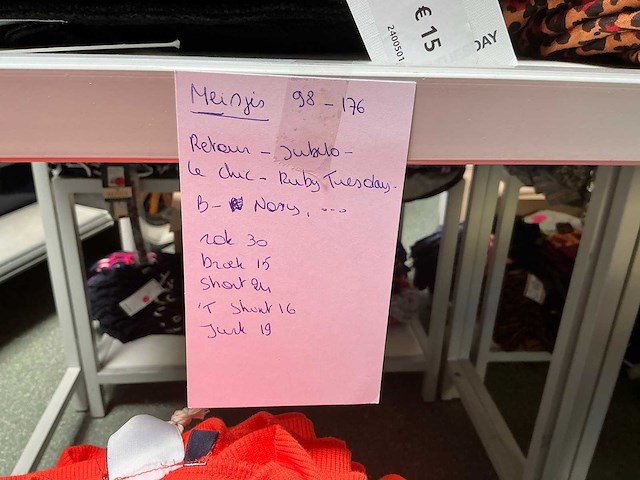 € 15
DAY
2400501
Meisjes 98 - 176
Retour - Jubel -
Le chic - Ruby Tuesday -
B - Nosy, ...
rok 30
broek 15
short 24
'T Short 16
Jurk 19